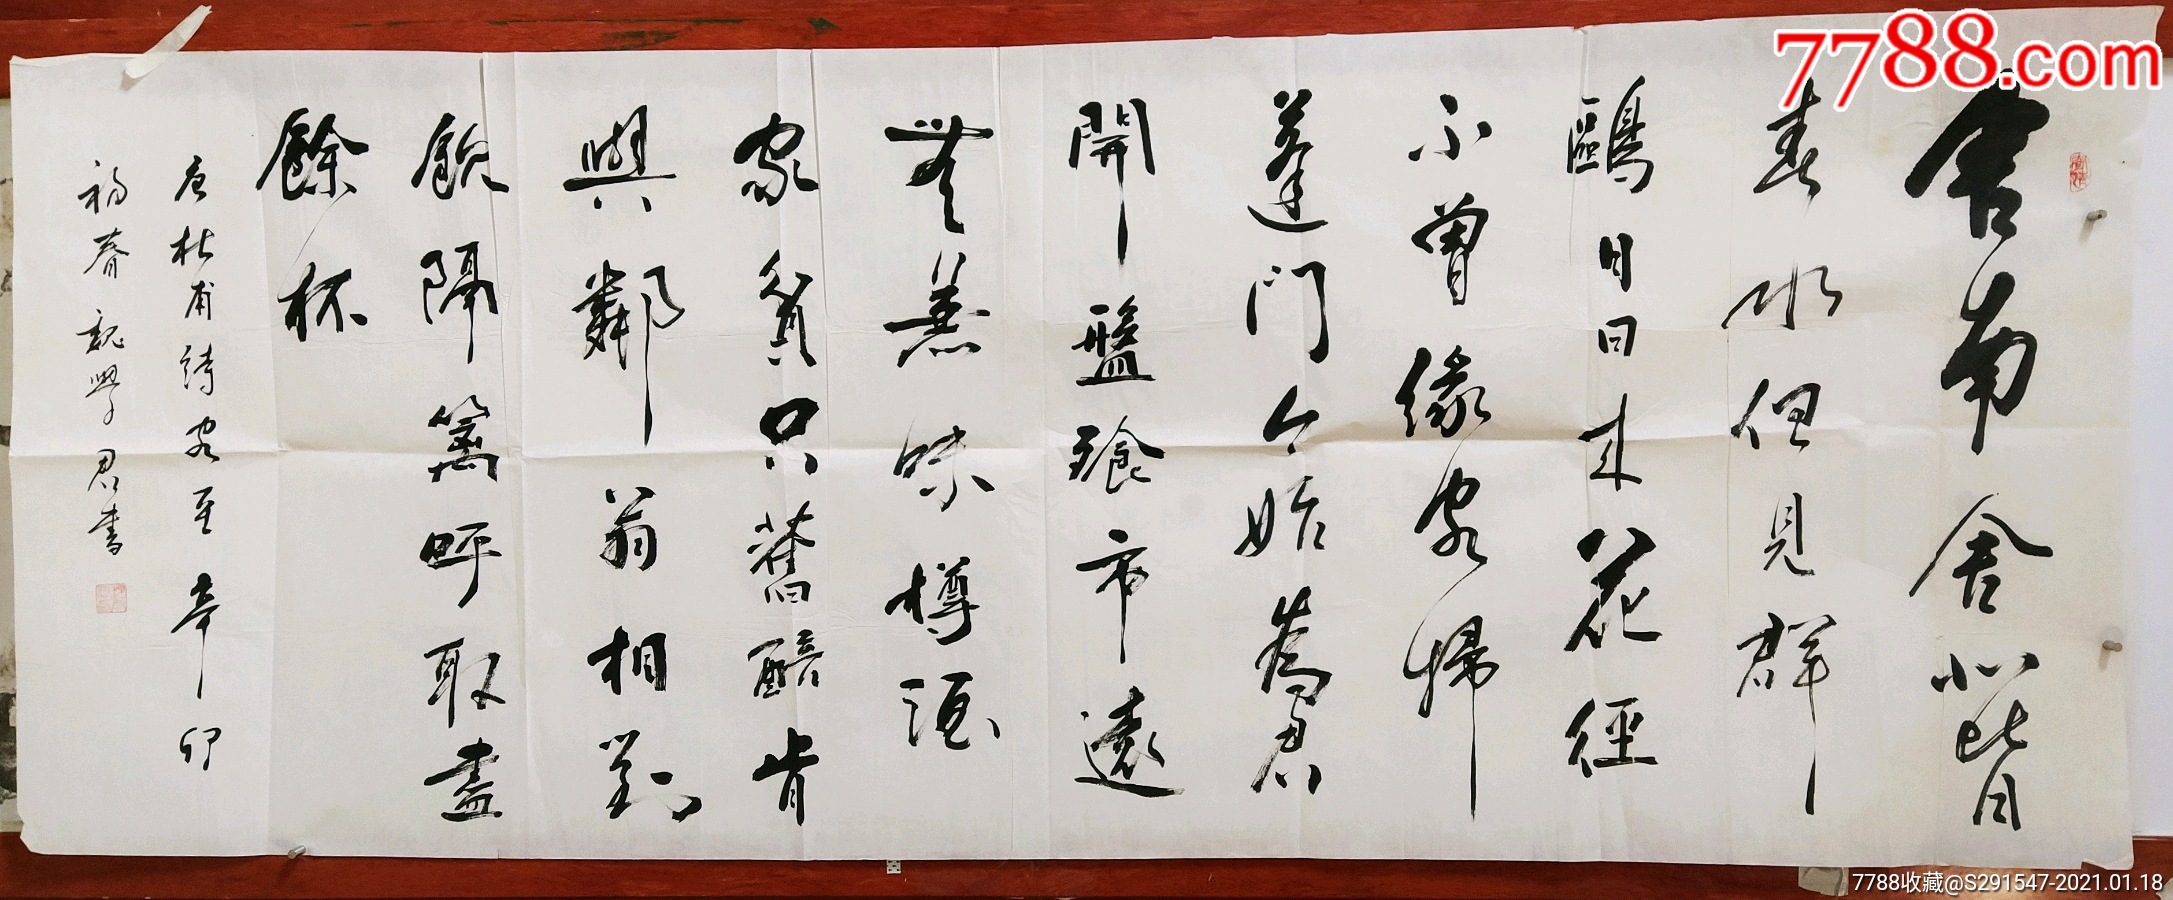 7788.com
舍南舍北皆
春水但見群
鷗日日來花徑
不曾緣客掃
蓬門今始為君
開盤飱市遠
無蒹味樽酒
家貧只舊醅肯
與鄰翁相對
飲隔籬呼取盡
餘杯
唐杜甫詩客至 辛卯
春魏學君書
7788收藏@S291547-2021.01.18